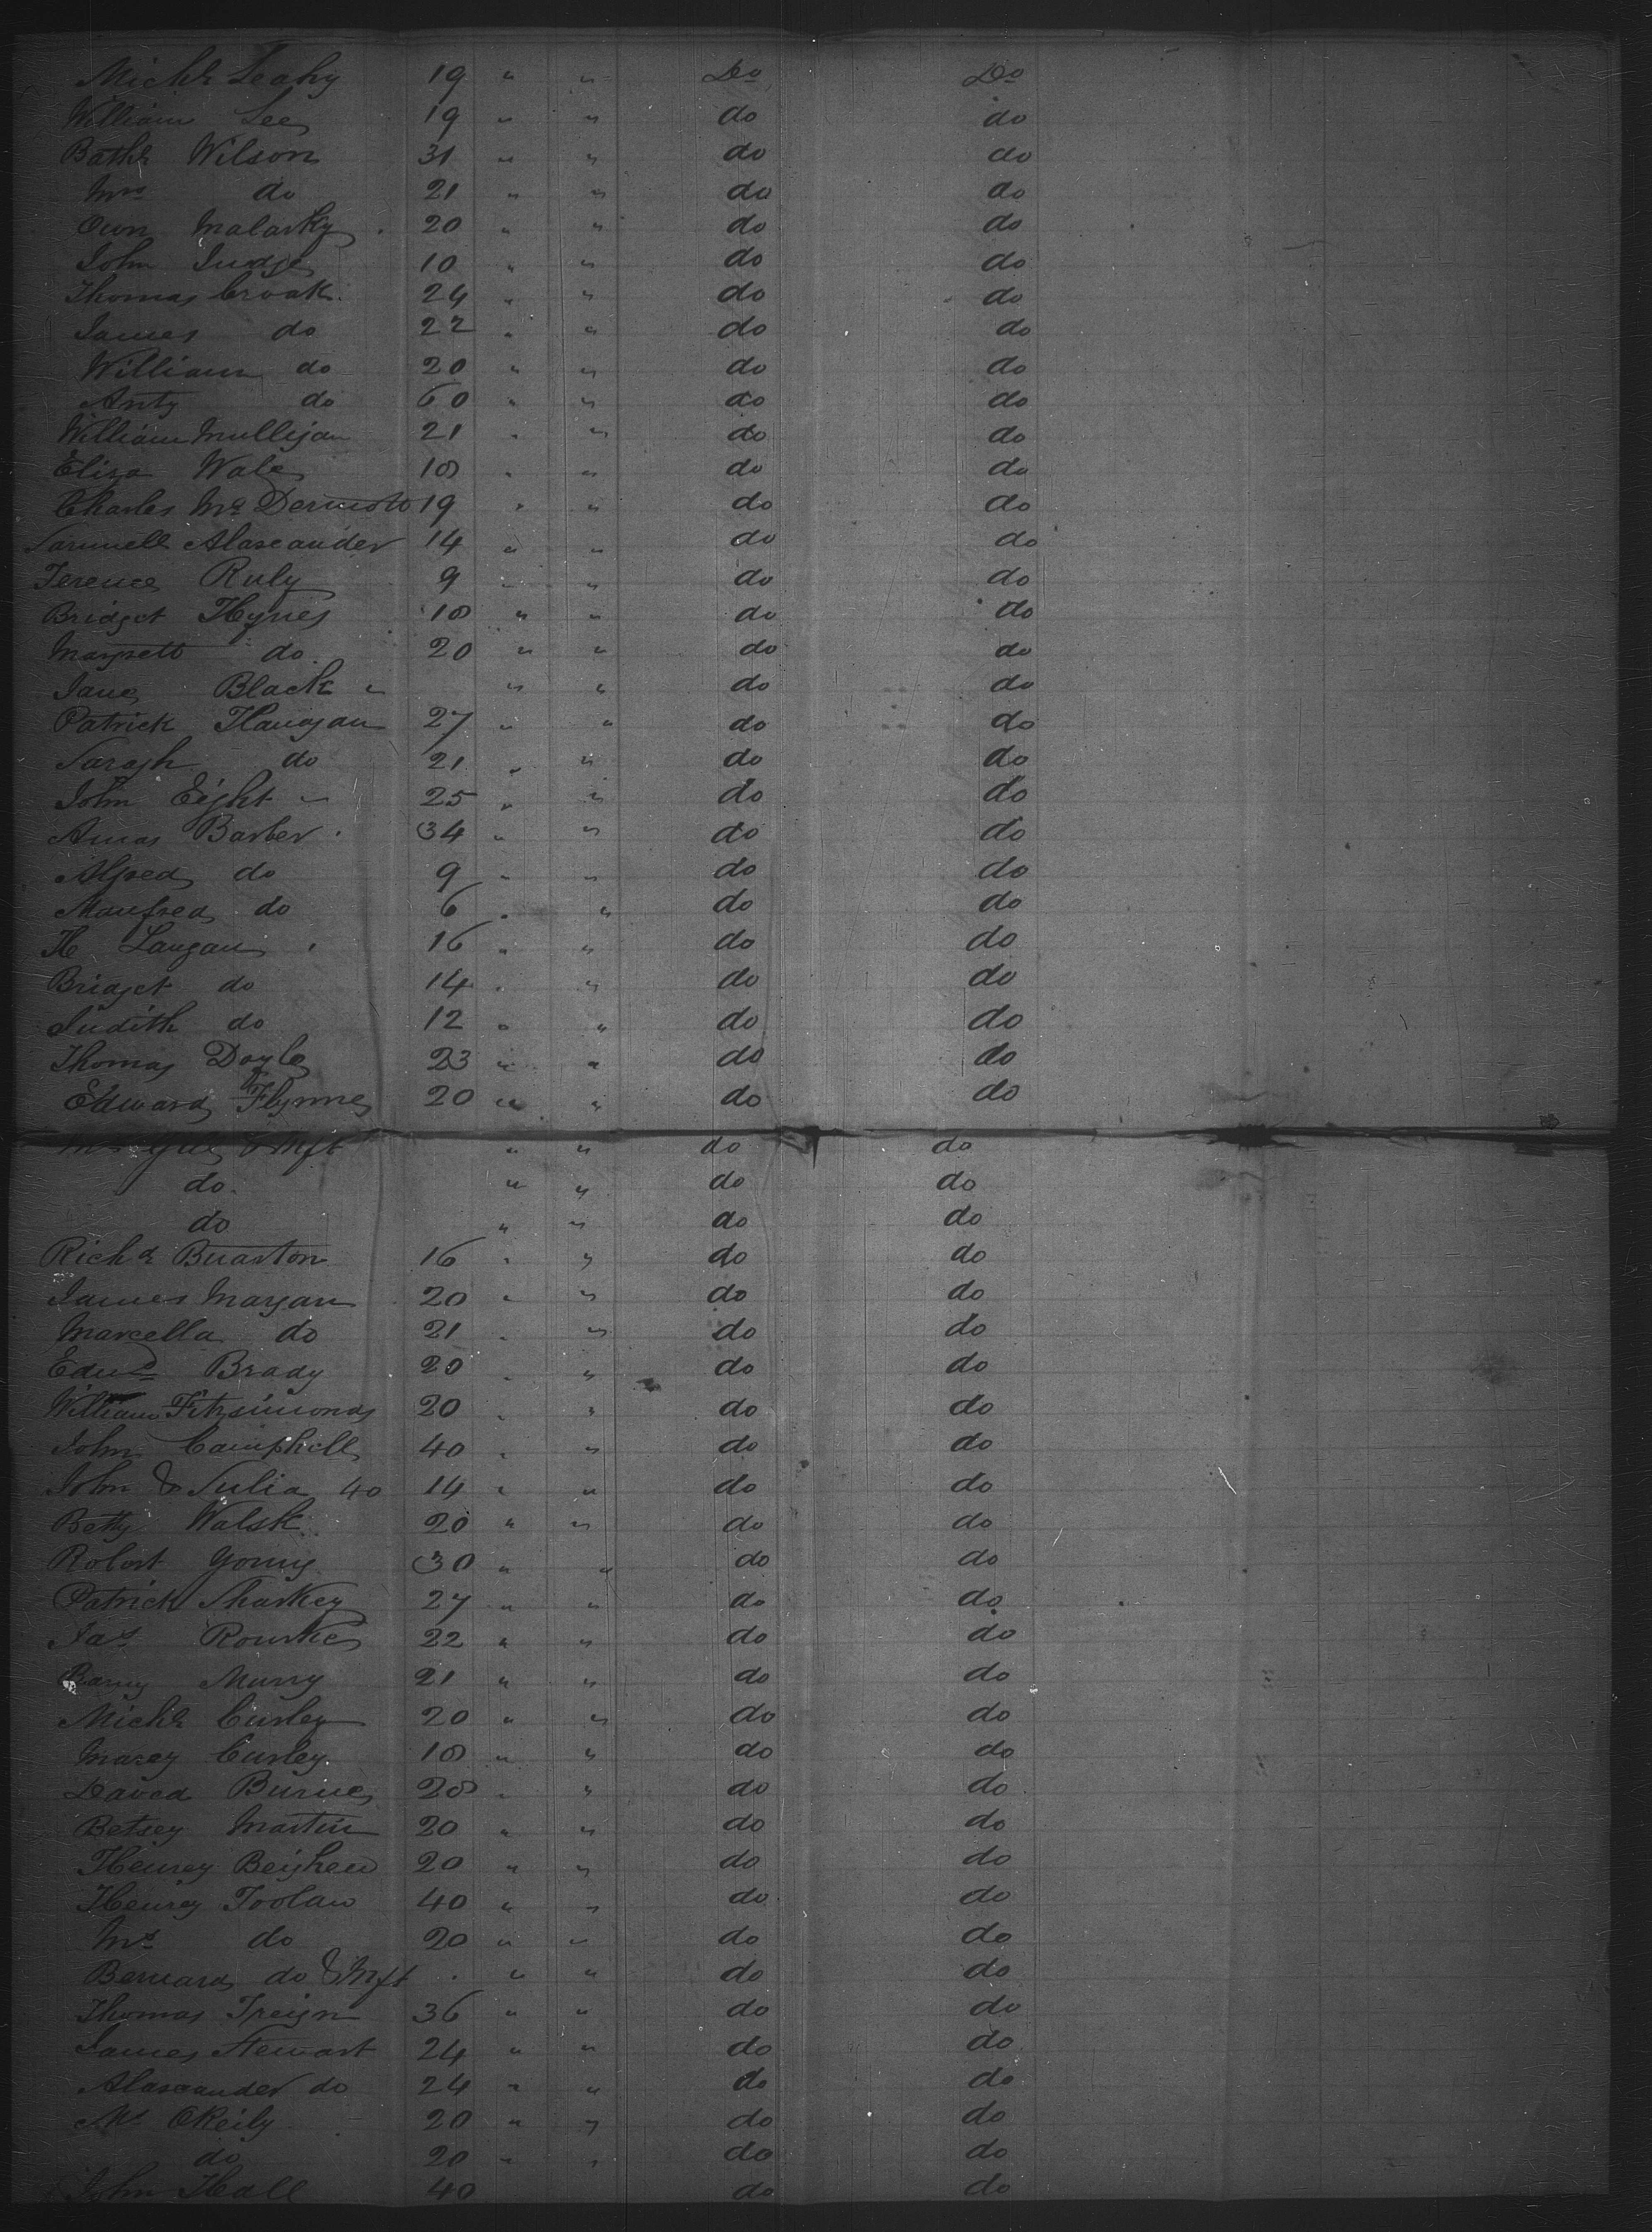 Michl Leahy 19 " " Do Do
William Lee 19 " " do do
Bathr Wilson 31 " " do do
Mrs do 21 " " do do
Own Malarky 20 " " do do
John Judge 10 " " do do
Thomas Croak 24 " " do do
James do 22 " " do do
William do 20 " " do do
Anty do 60 " " do do
William Mulligan 21 " " do do
Eliza Wale 18 " " do do
Charles Mc Dermott 19 " " do do
Samuell Alaxander 14 " " do do
Terence Ruly 9 " " do do
Bridget Hynes 18 " " do do
Margrett do 20 " " do do
Jane Black " " " do do
Patrick Flanagan 27 " " do do
Saragh do 21 " " do do
John Eight 25 " " do do
Amos Barber 34 " " do do
Alfred do 9 " " do do
Manfred do 6 " " do do
H Langan 16 " " do do
Bridget do 14 " " do do
Judith do 12 " " do do
Thomas Doyle 23 " " do do
Edward Flynne 20 " " do do
& Inft " " do do
do " " do do
do " " do do
Richd Buaston 16 " " do do
James Morgan 20 " " do do
Marcella do 21 " " do do
Edwd Brady 20 " " do do
William Fitzsimonds 20 " " do do
John Campbell 40 " " do do
John & Julia 40 14 " " do do
Betty Walsh 20 " " do do
Robert Young 30 " " do do
Patrick Sharkey 27 " " do do
Jas Rourke 22 " " do do
Barny Murry 21 " " do do
Michl Curley 20 " " do do
Marey Curley 18 " " do do
David Burne 28 " " do do
Betsey Martin 20 " " do do
Henrey Beighen 20 " " do do
Henrey Toolan 40 " " do do
Ms do 20 " " do do
Bernard do & Inft " " do do
Thomas Treign 36 " " do do
James Stewart 24 " " do do
Alaxander do 24 " " do do
Ms OReily 20 " " do do
do 20 " " do do
John Hall 40 do do